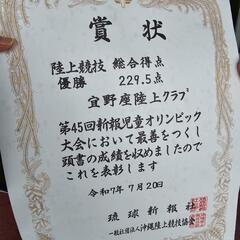 賞状
陸上競技 総合得点
優勝 229.5点
宜野座陸上クラブ
第45回新報児童オリンピック
大会において最善をつくし
頭書の成績を収めましたので
これを表彰します
令和7年7月20日
琉球新報社
一般社団法人沖縄陸上競技協会